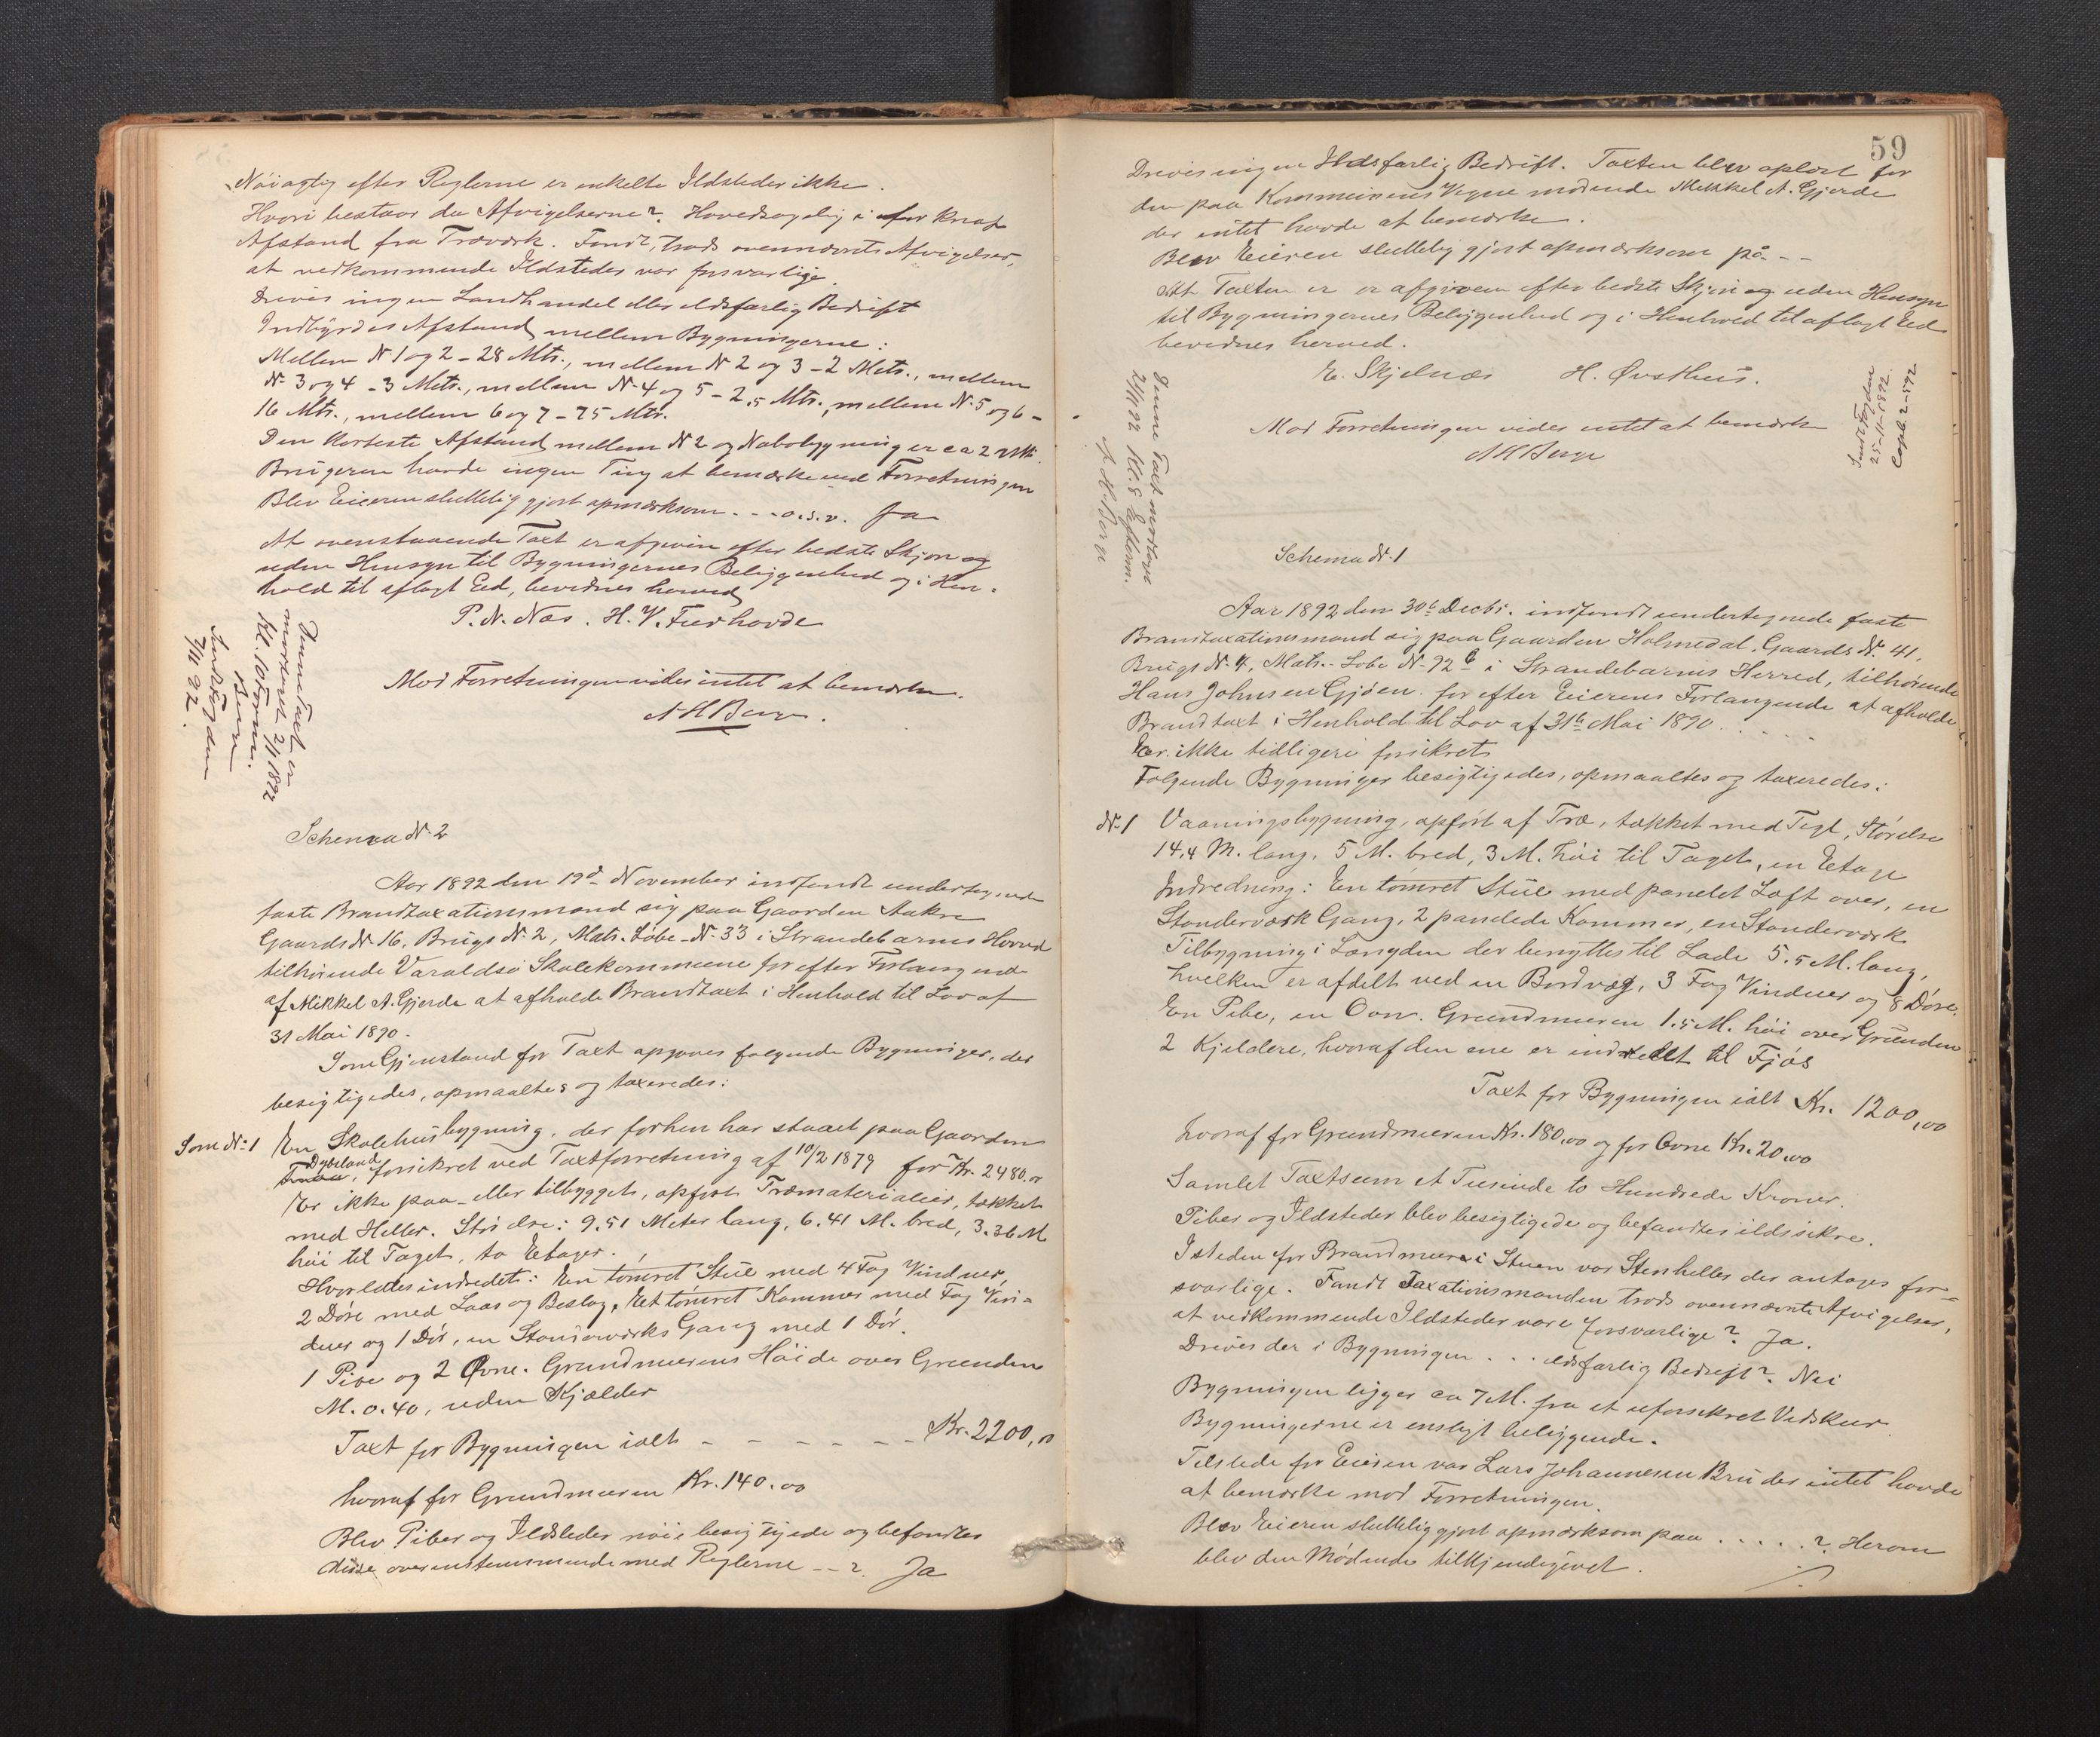 Nøiagtig efter Reglerne er enkelte Ildsteder ikke.
Hvori bestaar da Afvigelserne? Hovedsagelig i for knap
Afstand fra Træværk. Fandt, trods ovennævnte Afvigelser,
at vedkommende Ildsteder var forsvarlige
Drives ingen Landhandel eller ildsfarlig Bedrift
Indbyrdes Afstand mellem Bygningerne:
Mellem N 1 og 2 - 28 Mtr., mellem N 2 og 3 - 2 Metr., mellem
N. 3 og 4 - 3 Metr., mellem N. 4 og 5 - 2,5 Mtr., mellem N. 5 og 6 -
16 Mtr., mellem 6 og 7 - 75 Mtr.
Den korteste Afstand mellem N 2 og Nabobygning er ca 2 Mtr.
Brugeren havde ingen Ting at bemærke ved Forretningen
Blev Eieren sluttelig gjort opmærksom - - - o.s.v. Ja
At ovenstaaende Taxt er afgiven efter bedste Skjøn og
uden Hensyn til Bygningernes Beliggenhed og i Hen-
hold til aflagt Eed, bevidnes herved
P. N. Næs. H. V. Fuerhovde
Mod Forretningen vides intet at bemærke.
N H Berge.
Denne Taxt er
modtaget 2/11 1892
Kl. 10 Form.
Berge
Indb. Fogden
7/11 92.
Schema N. 2
Aar 1892 den 19d November indfandt undertegnede
faste Brandtaxationsmænd sig paa Gaarden Aakre
Gaards N. 16, Brugs N. 2, Matr. Løbe-N. 33 i Strandebarms Herred
tilhørende Varaldsø Skolekommune for efter Forlangende
af Mikkel A. Gjerde at afholde Brandtaxt i Henhold til Lov af
31 Mai 1890.
Som Gjenstand for Taxt opgaves følgende Bygninger, der
besigtigedes, opmaaltes og taxeredes:
Som N. 1 En Skolehusbygning, der forhen har staaet paa Gaarden
Dybsland, forsikret ved Taxtforretning af 10/2 1879 for Kr. 2480.00
Er ikke paa- eller tilbygget, opført Træmaterialier, tækket
med Heller. Størelse: 9.51 Meter lang, 6.41 M. bred, 3.36 M
høi til Taget, to Etager.
Hvorledes indredet: En tømret Stue med 4 Fag Vinduer,
2 Døre med Laas og Beslag, Et tømret Kammer med Fag Vin-
duer og 1 Dør, en Stonderværks Gang med 1 Dør.
1 Pibe og 2 Ovne. Grundmurens Høide over Grunden
M. 0.40, uden Kjælder
Taxt for Bygningen ialt - - - - - - Kr. 2200,00
hvoraf for Grundmuren Kr. 140.00
Blev Piber og Ildsteder nøie besigtigede og befandtes
disse overenstemmende med Reglerne - - ? Ja
59
Drives ingen Ildsfarlig Bedrift. Taxten blev oplæst for
den paa Kommunens Vegne mødende Mikkel A. Gjerde
der intet havde at bemærke.
Blev Eieren sluttelig gjort opmærksom på - -
At Taxten er afgiven efter bedste Skjøn og uden Hensyn
til Bygningernes Beliggenhed og i Henhold til aflagt Eed
bevidnes herved.
E. Skjelnæs H. Øvsthus.
Mod Forretningen vides intet at bemærke
N H Berge
Denne Taxt modtaget
21/11 92 Kl. 8 Efterm.
N. H. Berge
Sendt Fogden
25-11-1892
Copb. 2-592
Schema N. 1
Aar 1892 den 30te Decbr. indfandt undertegnede faste
Brandtaxationsmænd sig paa Gaarden Holmedal, Gaards N. 41,
Brugs N. 4, Matr.- Løbe N. 92 b i Strandebarms Herred, tilhørende
Hans Johnsen Gjøen for efter Eierens Forlangende at afholde
Brandtaxt i Henhold til Lov af 31te Mai 1890 . . . . .
Er ikke tidligere forsikret
Følgende Bygninger besigtigedes, opmaaltes og taxeredes:
N. 1 Vaaningsbygning, opført af Træ, tækket med Tegl, Størelse
14,4 M. lang, 5 M. bred, 3 M. høi til Taget, en Etage
Indredning: En tømret Stue med panelet Loft over, en
Stonderværk Gang, 2 panelede Kammer, en Stonderværk
Tilbygning i Længden der benyttes til Lade 5.5 M. lang,
hvilken er afdelt ved en Bordvæg, 3 Fag Vinduer og 8 Døre.
En Pibe, en Ovn. Grundmuren 1.5 M. høi over Grunden
2 Kjeldere, hvoraf den ene er indredet til Fjøs
Taxt for Bygningen ialt Kr. 1200,00
hvoraf for Grundmuren Kr. 180,00 og for Ovne Kr. 20,00
Samlet Taxtsum et Tusinde to Hundrede Kroner.
Piber og Ildsteder blev besigtigede og befandtes ildsikre.
Isteden for Brandmure i Stuen var Stenheller der antages for-
svarlige. Fandt Taxationsmænden trods ovennævnte Afvigelser,
at vedkommende Ildsteder vare forsvarlige? Ja.
Drives der i Bygningen . . . ildsfarlig Bedrift? Nei
Bygningen ligger ca 7 M. fra et uforsikret Vedskur
Bygningerne er ensligt beliggende.
Tilstede for Eieren var Lars Johannesen Bru der intet havde
at bemærke mod Forretningen.
Blev Eieren sluttelig gjort opmærksom paa . . . . . ? Herom
blev den Mødende tilkjendegivet.